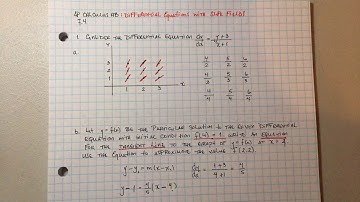 AP CALCULUS AB: DIFFERENTIAL EQUATIONS WITH SLOPE FIELDS
7.4
1. CONSIDER THE DIFFERENTIAL EQUATION dy/dx = y+3/x+1
a.
y
3
2
1
1 2 3 x
4/2 5/2 6/2
4/3 5/3 6/3
4/4 5/4 6/4
b. LET y = f(x) BE THE PARTICULAR SOLUTION TO THE GIVEN DIFFERENTIAL
EQUATION WITH INITIAL CONDITION f(4) = 1. WRITE AN EQUATION
FOR THE TANGENT LINE TO THE GRAPH OF y = f(x) AT x = 4.
USE THE EQUATION TO APPROXIMATE THE VALUE f(2.2).
y - y₁ = m(x - x₁) dy/dx = 1+3/4+1 = 4/5
y - 1 = 4/5(x - 4)